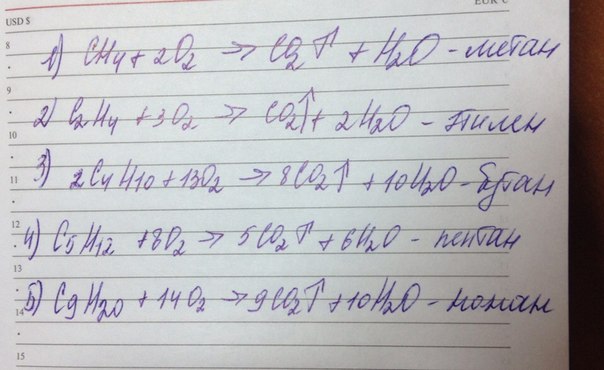 USD $
EUR €
8
1) CH4 + 2O2 → CO2↑ + H2O - метан
9
2) C2H4 + 3O2 → CO2↑ + 2H2O - этилен
10
3) 2C4H10 + 13O2 → 8CO2↑ + 10H2O - бутан
11
12
4) C5H12 + 8O2 → 5CO2↑ + 6H2O - пентан
13
5) C9H20 + 14O2 → 9CO2↑ + 10H2O - нонан
14
15